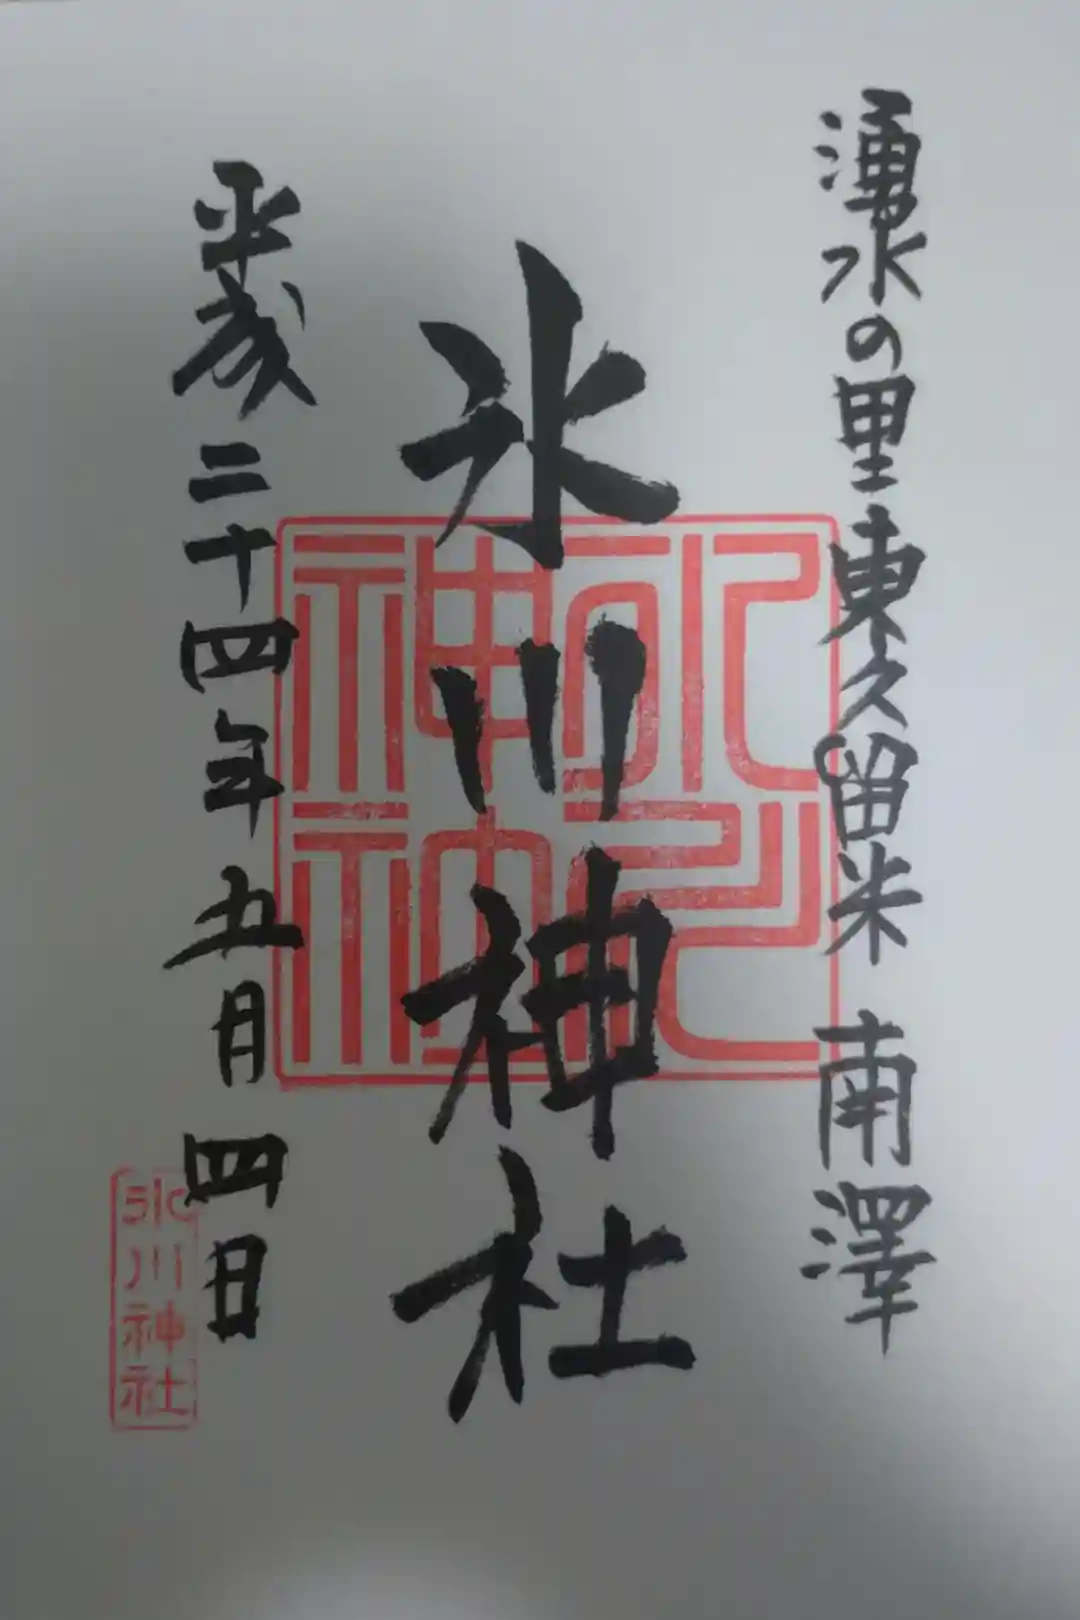 湧水の里東久留米 南澤
氷川神社
平成二十四年五月四日
氷川神社
氷川神社